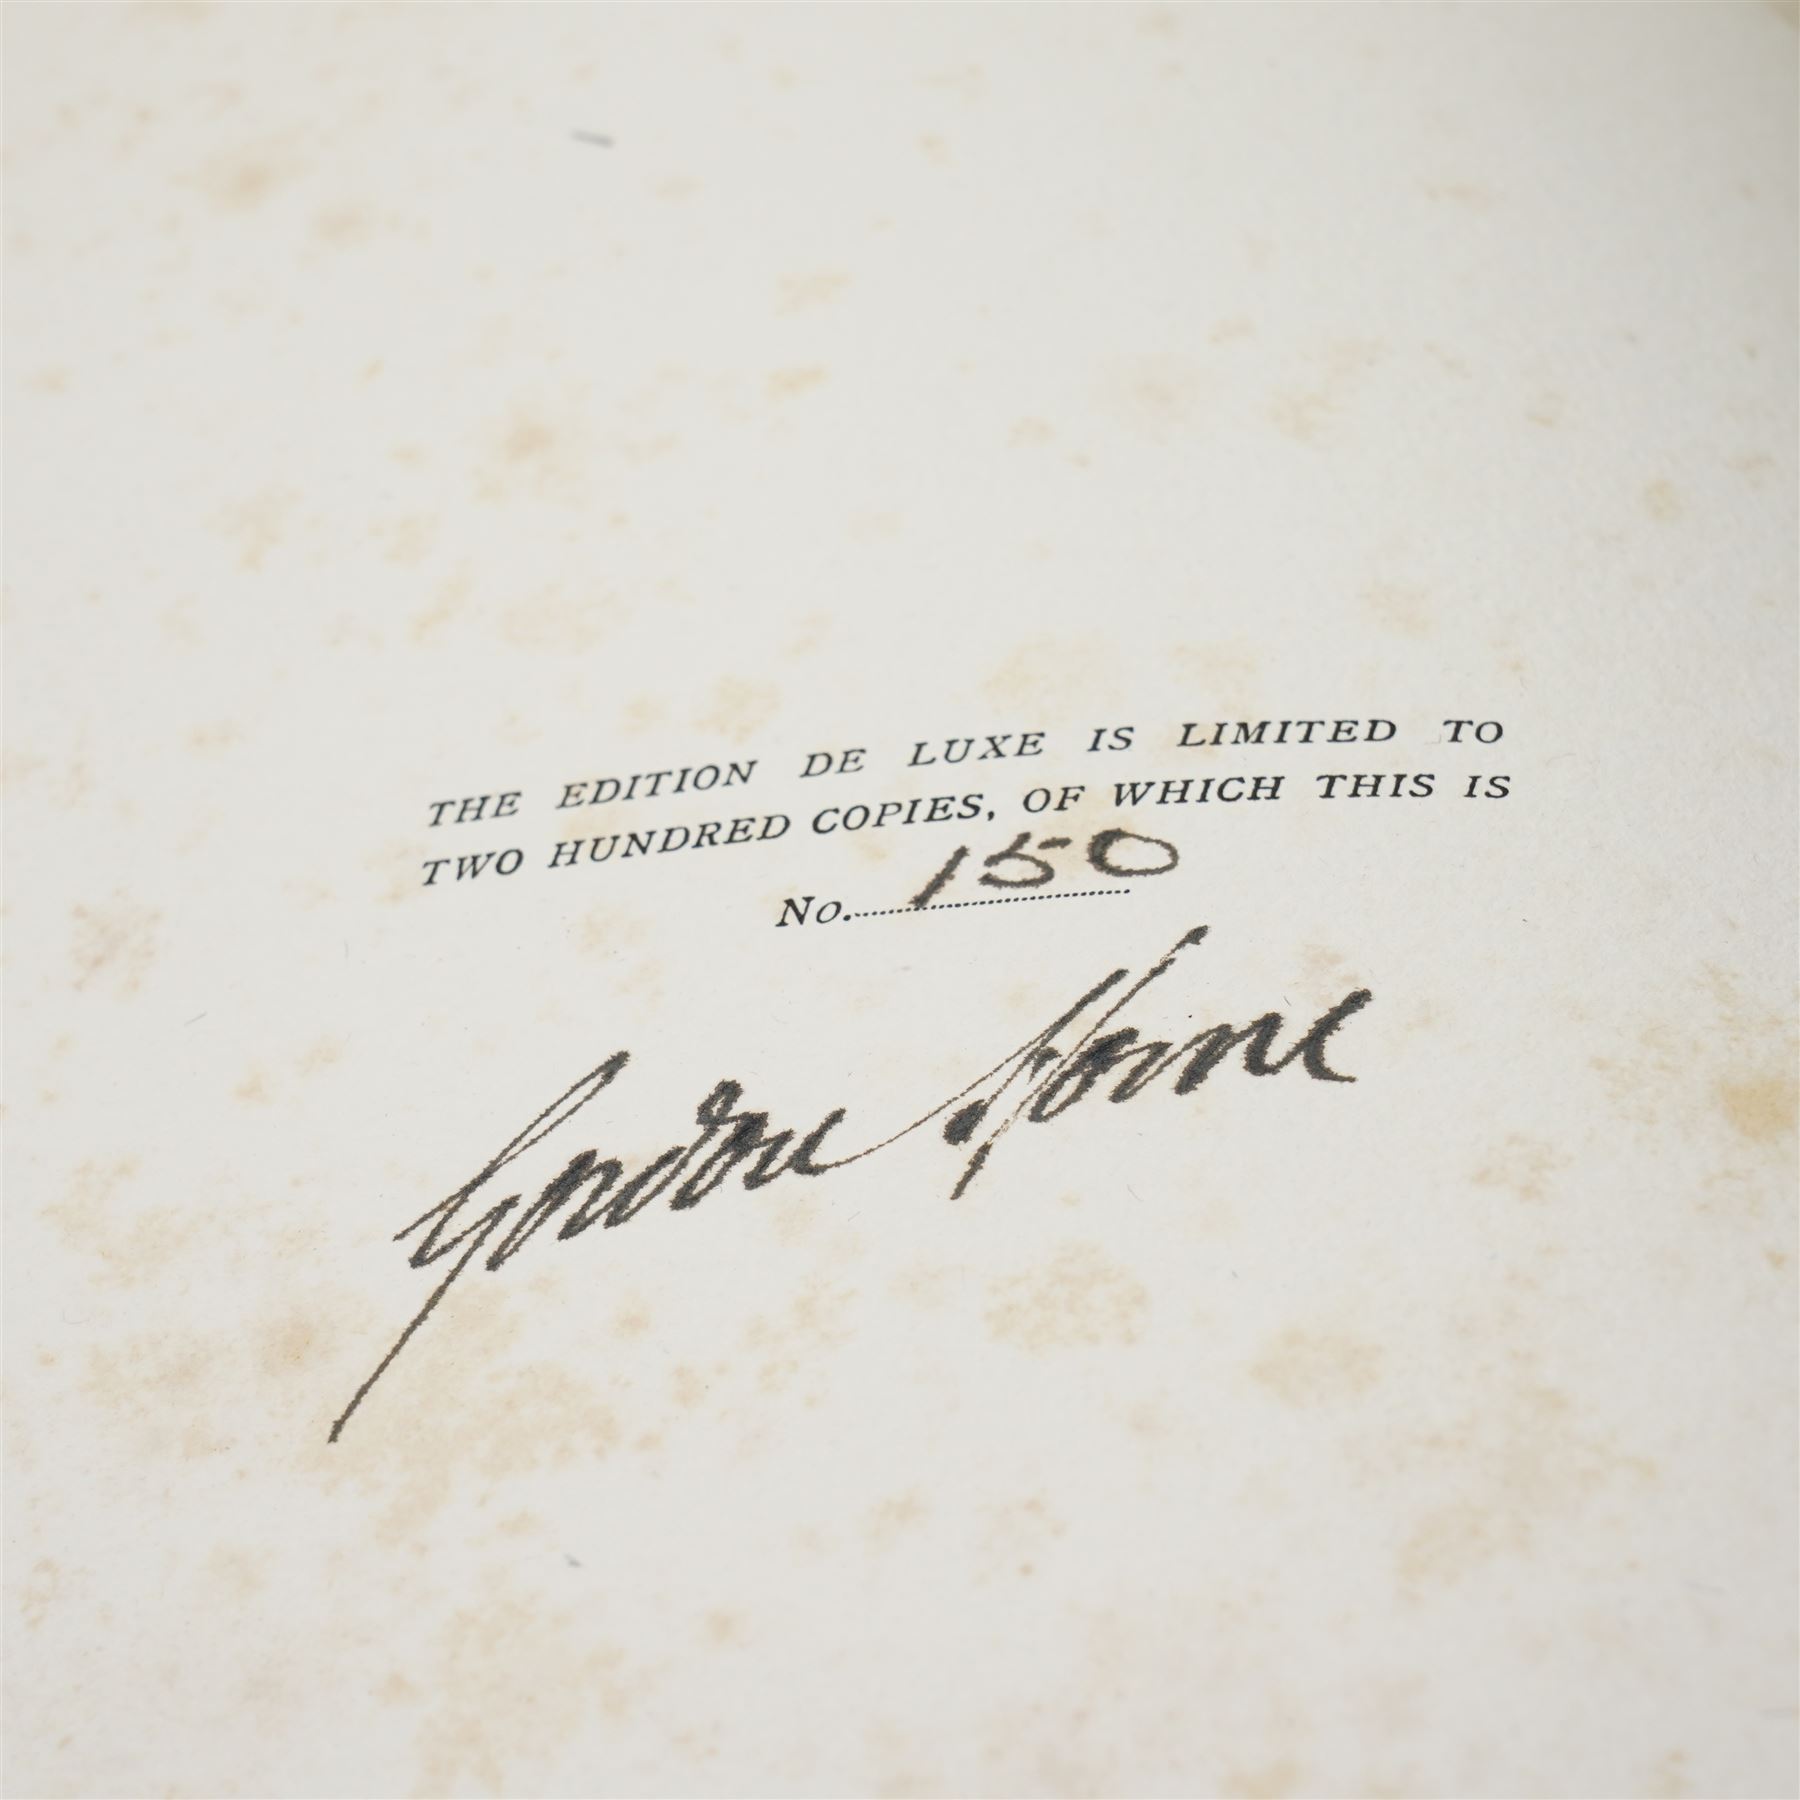 THE EDITION DE LUXE IS LIMITED TO
TWO HUNDRED COPIES, OF WHICH THIS IS
No. 150
Gordon Home